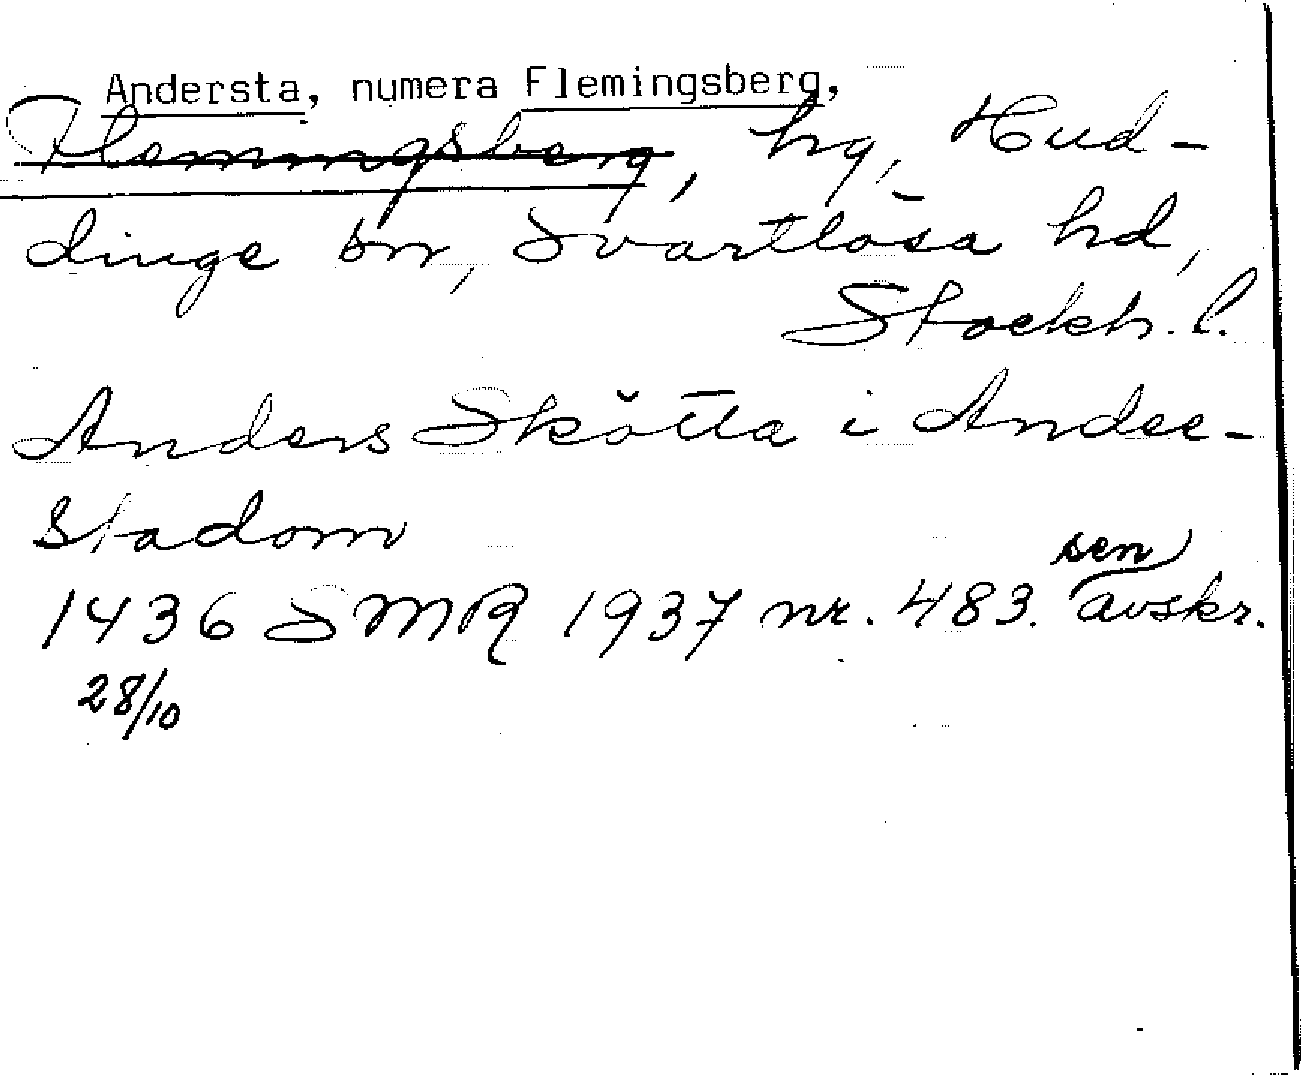 Andersta, numera Flemingsberg,
Flemingsberg, hg, Hud-
dinge sn, Svartlösa hd,
Stockh. l.
Anders Skötta i Andee-
stadom
sen
1436 SMR 1937 nr. 483. avskr.
28/10